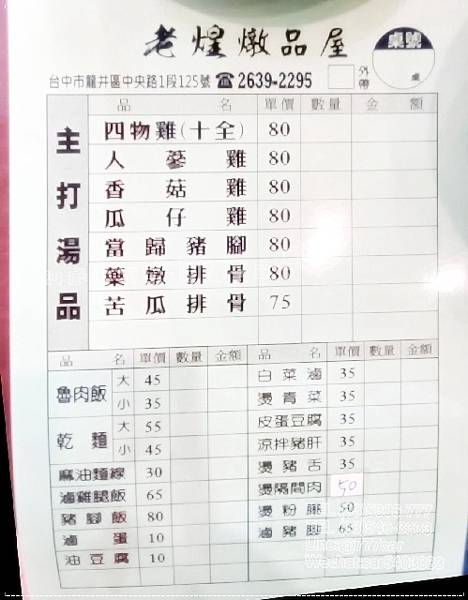 老煌燉品屋
桌號
桌
台中市龍井區中央路1段125號 ☎2639-2295 外帶
主打湯品
品名 單價 數量 金額
四物雞(十全) 80
人蔘雞 80
香菇雞 80
瓜仔雞 80
當歸豬腳 80
藥燉排骨 80
苦瓜排骨 75
品名 單價 數量 金額
魯肉飯 大 45
小 35
乾麵 大 55
小 45
麻油麵線 30
滷雞腿飯 65
豬腳飯 80
滷蛋 10
油豆腐 10
品名 單價 數量 金額
白菜滷 35
燙青菜 35
皮蛋豆腐 35
涼拌豬肝 35
燙豬舌 35
燙隔間肉 50
燙粉腸 50
滷豬腳 65